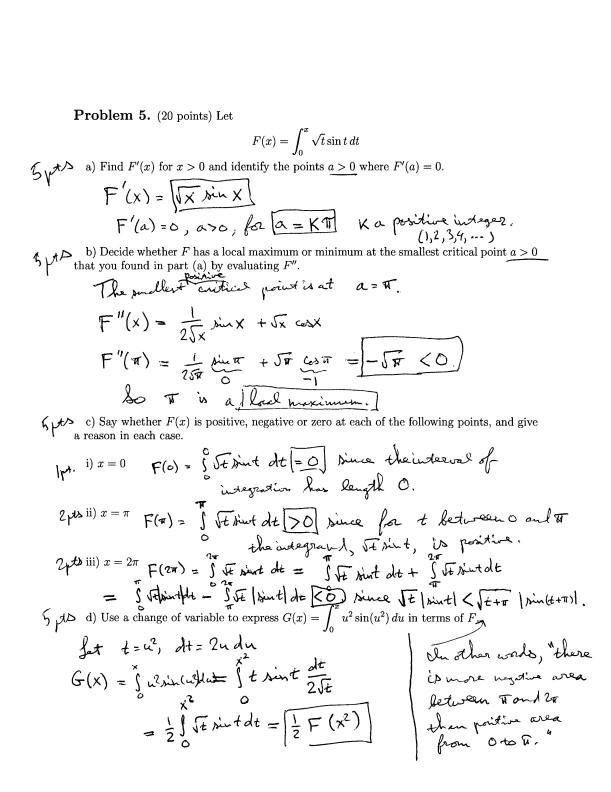 Problem 5. (20 points) Let
F(x) = ∫₀ˣ √t sin t dt
5 pts a) Find F′(x) for x > 0 and identify the points a > 0 where F′(a) = 0.
F′(x) = √x sin x
F′(a) = 0, a>0, for a = Kπ K a positive integer.
(1,2,3,4, ...)
5 pts b) Decide whether F has a local maximum or minimum at the smallest critical point a > 0
that you found in part (a) by evaluating F″.
positive
The smallest critical point is at a = π.
F″(x) = 1/(2√x) sin x + √x cos x
F″(π) = 1/(2√π) sin π + √π cos π = -√π < 0.
0 -1
So π is a local maximum.
5 pts c) Say whether F(x) is positive, negative or zero at each of the following points, and give
a reason in each case.
1 pt. i) x = 0 F(0) = ∫₀⁰ √t sin t dt = 0 since the interval of
integration has length 0.
2 pts ii) x = π F(π) = ∫₀^π √t sin t dt > 0 since for t between 0 and π
the integrand, √t sin t, is positive.
2 pts iii) x = 2π F(2π) = ∫₀^2π √t sin t dt = ∫₀^π √t sin t dt + ∫_π^2π √t sin t dt
= ∫₀^π √t |sin t| dt - ∫_π^2π √t |sin t| dt < 0 since √t |sin t| < √t+π |sin(t+π)|.
5 pts d) Use a change of variable to express G(x) = ∫₀ˣ u² sin(u²) du in terms of F.
Let t = u², dt = 2u du
G(x) = ∫₀ˣ u² sin(u²) du = ∫₀^x² t sin t dt/(2√t)
= 1/2 ∫₀^x² √t sin t dt = 1/2 F(x²)
In other words, "there
is more negative area
between π and 2π
than positive area
from 0 to π."